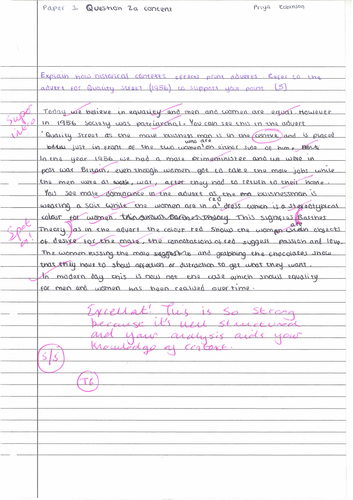 Paper 1 Question 2a content Priya
Explain how historical contexts print adverts. Refer to the
advert for Quality Street (1956) to support your point [5]
Today we believe in equality and men and women are equal. However
in 1956 society was patriarchal. You can see this in the advert
'Quality Street' as the male business man is in the centre and is placed
just in front of the two women who are on either side of him.
In the year 1956 we had a male primeminister and we were in
post war Britain, even though women got to take the male jobs while
the men were at war, after they had to return to their home.
You see male dominance in the advert as the businessman is
wearing a suit while the women are in a red dress which is a stereotypical
colour for women. This signifies Barthes
Theory as in the advert the colour red show the women are objects
of desire for the male, the connotations of red suggest passion and love.
The women kissing the male and grabbing the chocolates show
that they have to show affection or distraction to get what they want.
In modern day this is now not the case which shows equality
for men and women has been realised over time.
Excellent! This is so strong
because it's well structured
and your analysis aids your
knowledge of context.
5/5